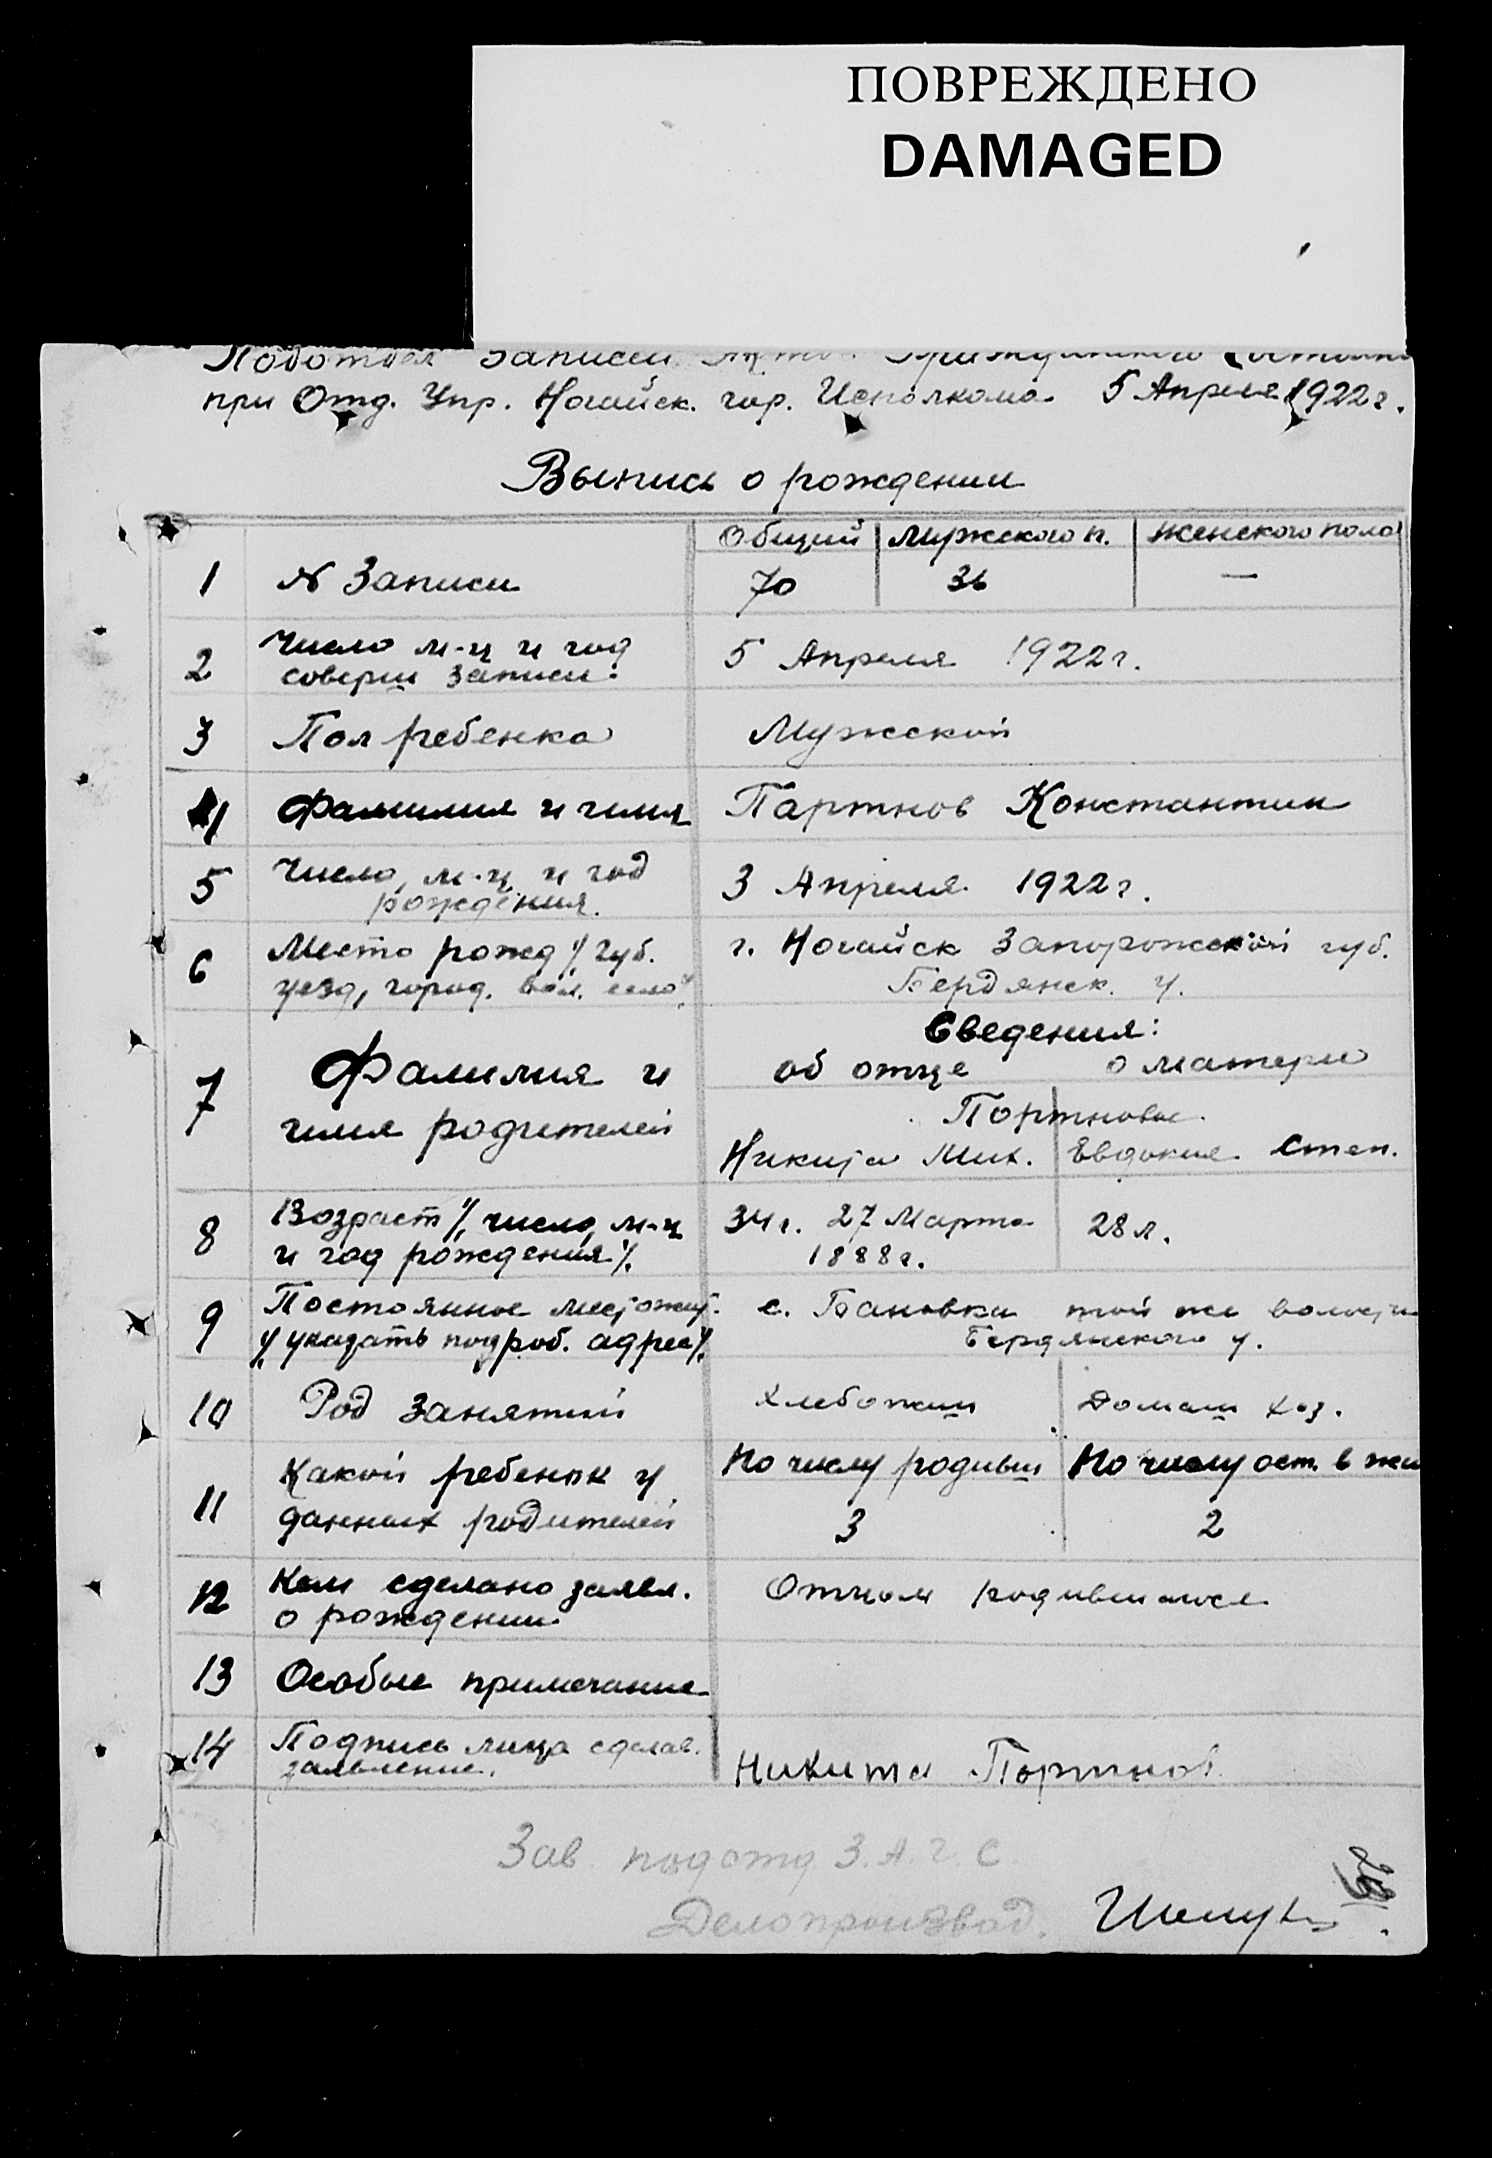 ПОВРЕЖДЕНО
DAMAGED
Подотдел Записей
при Отд. Упр. Ногайск. гор. Исполкома. 5 Апреля 1922 г.
Выпись о рождении
Общий Мужского п. Женского пола
1 № Записи 70 36 —
2 Число м-ц и год
соверш записи. 5 Апреля 1922 г.
3 Пол ребенка Мужской
4 Фамилия и имя Партнов Константин
5 Число, м-ц и год
рождения. 3 Апреля 1922 г.
6 Место рожд /губ. г. Ногайск Запорожской губ.
уезд, город. вол. село/ Бердянск. у.
Сведения:
7 Фамилия и об отце о матери
имя родителей Портновы
Никита Мих. Евдокия Степ.
8 Возраст /число, м-ц 34 г. 27 Марта 28 л.
и год рождения/. 1888 г.
9 Постоянное местожит. с. Бановка той же волости
/указать подроб. адрес/. Бердянского у.
10 Род занятий Хлебопаш Домаш хоз.
11 Какой ребенок у По числу родивш По числу ост. в жи
данных родителей 3 2
12 Кем сделано заявл. Отцом родившегося
о рождении.
13 Особые примечание
14 Подпись лица сделав.
заявление. Никита Портнов
Зав. подотд З.А.Г.С.
Делопроизвод.